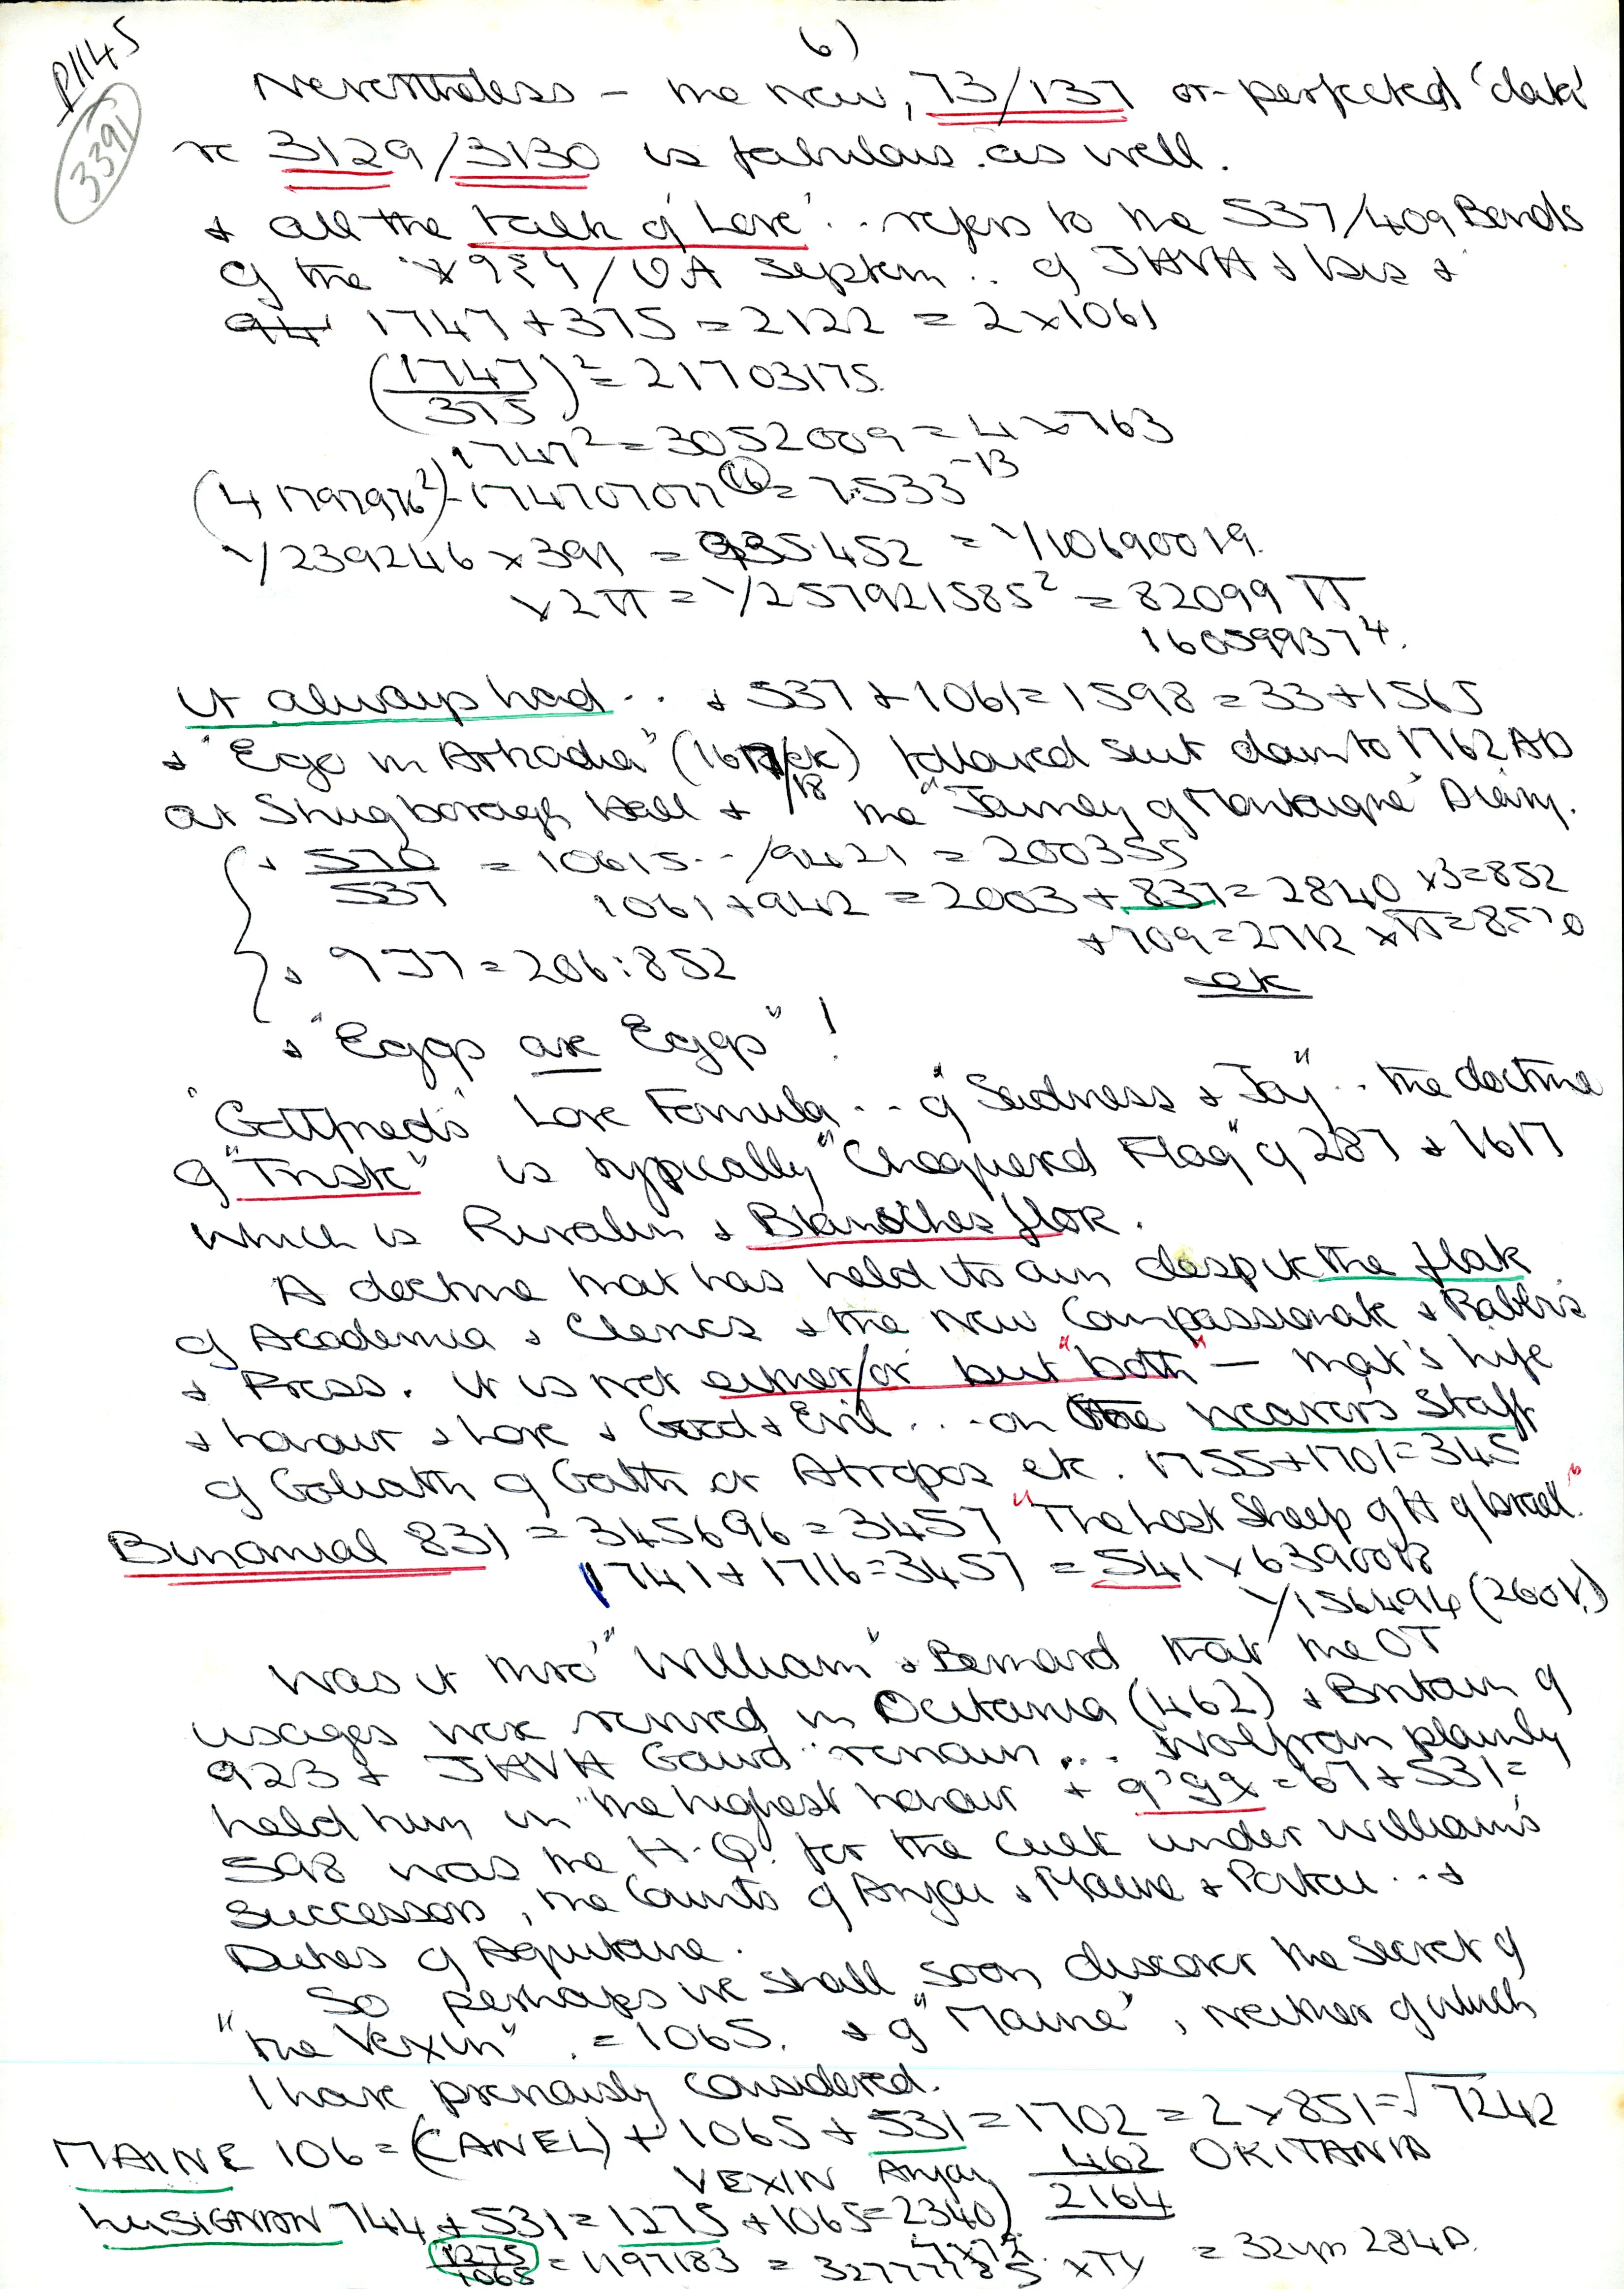 P1145
3391
6)
Nevertheless - the new, 73/137 or perfected 'data'
re 3129/3130 is fabulous as well.
+ all the talk of 'Love' .. refers to the 537/409 Bends
of the / septem .. of JHVH +
1747 + 375 = 2122 = 2 x 1061
(1747/375)² = 21703175.
1747² = 3052009 = 4 x 763
(41797976²) - 174707077 (16) = 7.533 -13
1/239246 x 391 = 935.452 = 1/10690019.
x 2π = 1/257921585² = 82099 π
160599374.
it always had .. + 537 + 1061 = 1598 = 33 + 1565
+ "Ego in Arkadia" (1617/18 etc) followed suit down to 1762 AD
at Shugborough Hall + the "Journey of Montaigne" Diary.
+ 570/537 = 10615.. /9421 = 200355
1061 + 942 = 2003 + 837 = 2840 x3 = 852
+ 709 = 2712 x π = 8520
+ = 206:852
etc
+ "Eggs are Eggs" !
"Gottfried's" Love Formula .. of "Sadness + Joy" .. the doctrine
of "Trist" is typically "Chequered Flag" of 287 + 1617
which is Rivalin + Blanschesflor.
A doctrine that has held its own despite the flak
of Academia + Clerics + the new Compassionate + Rabbis
+ Press. it is not either/or but "both" - that's life
+ honour + Love + Good + Evil ... on the weaver's Staff
of Goliath of Gath or Atropos etc. 1755 + 1701 = 345
Binomial 831 = 345696 = 3457 "The Lost Sheep of H of Israel."
1741 + 1716 = 3457 = 541 x 6390018
1/156494 (260V.)
Was it thro' "William" + Bernard that the OT
usages were revived in Ocitania (462) + Britain of
923 + JHVH Gawd remain ... Wolfram plainly
held him in "the highest honour" + = 67 + 531 =
598 was the H.Q. for the cult under William's
successors, the Counts of Anjou + Maine + Poitou .. +
Dukes of Aquitane.
So perhaps we shall soon discover the secret of
"the Vexin" = 1065. + of "Maine", neither of which
I have previously considered.
MAINE 106 = (CANEL) + 1065 + 531 = 1702 = 2 x 851 = √7242
VEXIN Anjou 462 OKITANIA
2164
LUSIGNAN 744 + 531 = 1275 + 1065 = 2340)
1275/1065 = 1197183 = = 32yrs 284D.